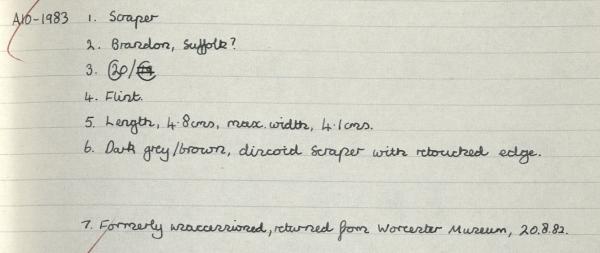 A10-1983 1. Scraper
2. Brandon, Suffolk?
3. 20/
4. Flint.
5. Length, 4.8cms, max. width, 4.1cms.
6. Dark grey/brown, discoid scraper with retouched edge.
7. Formerly unaccessioned, returned from Worcester Museum, 20.8.82.